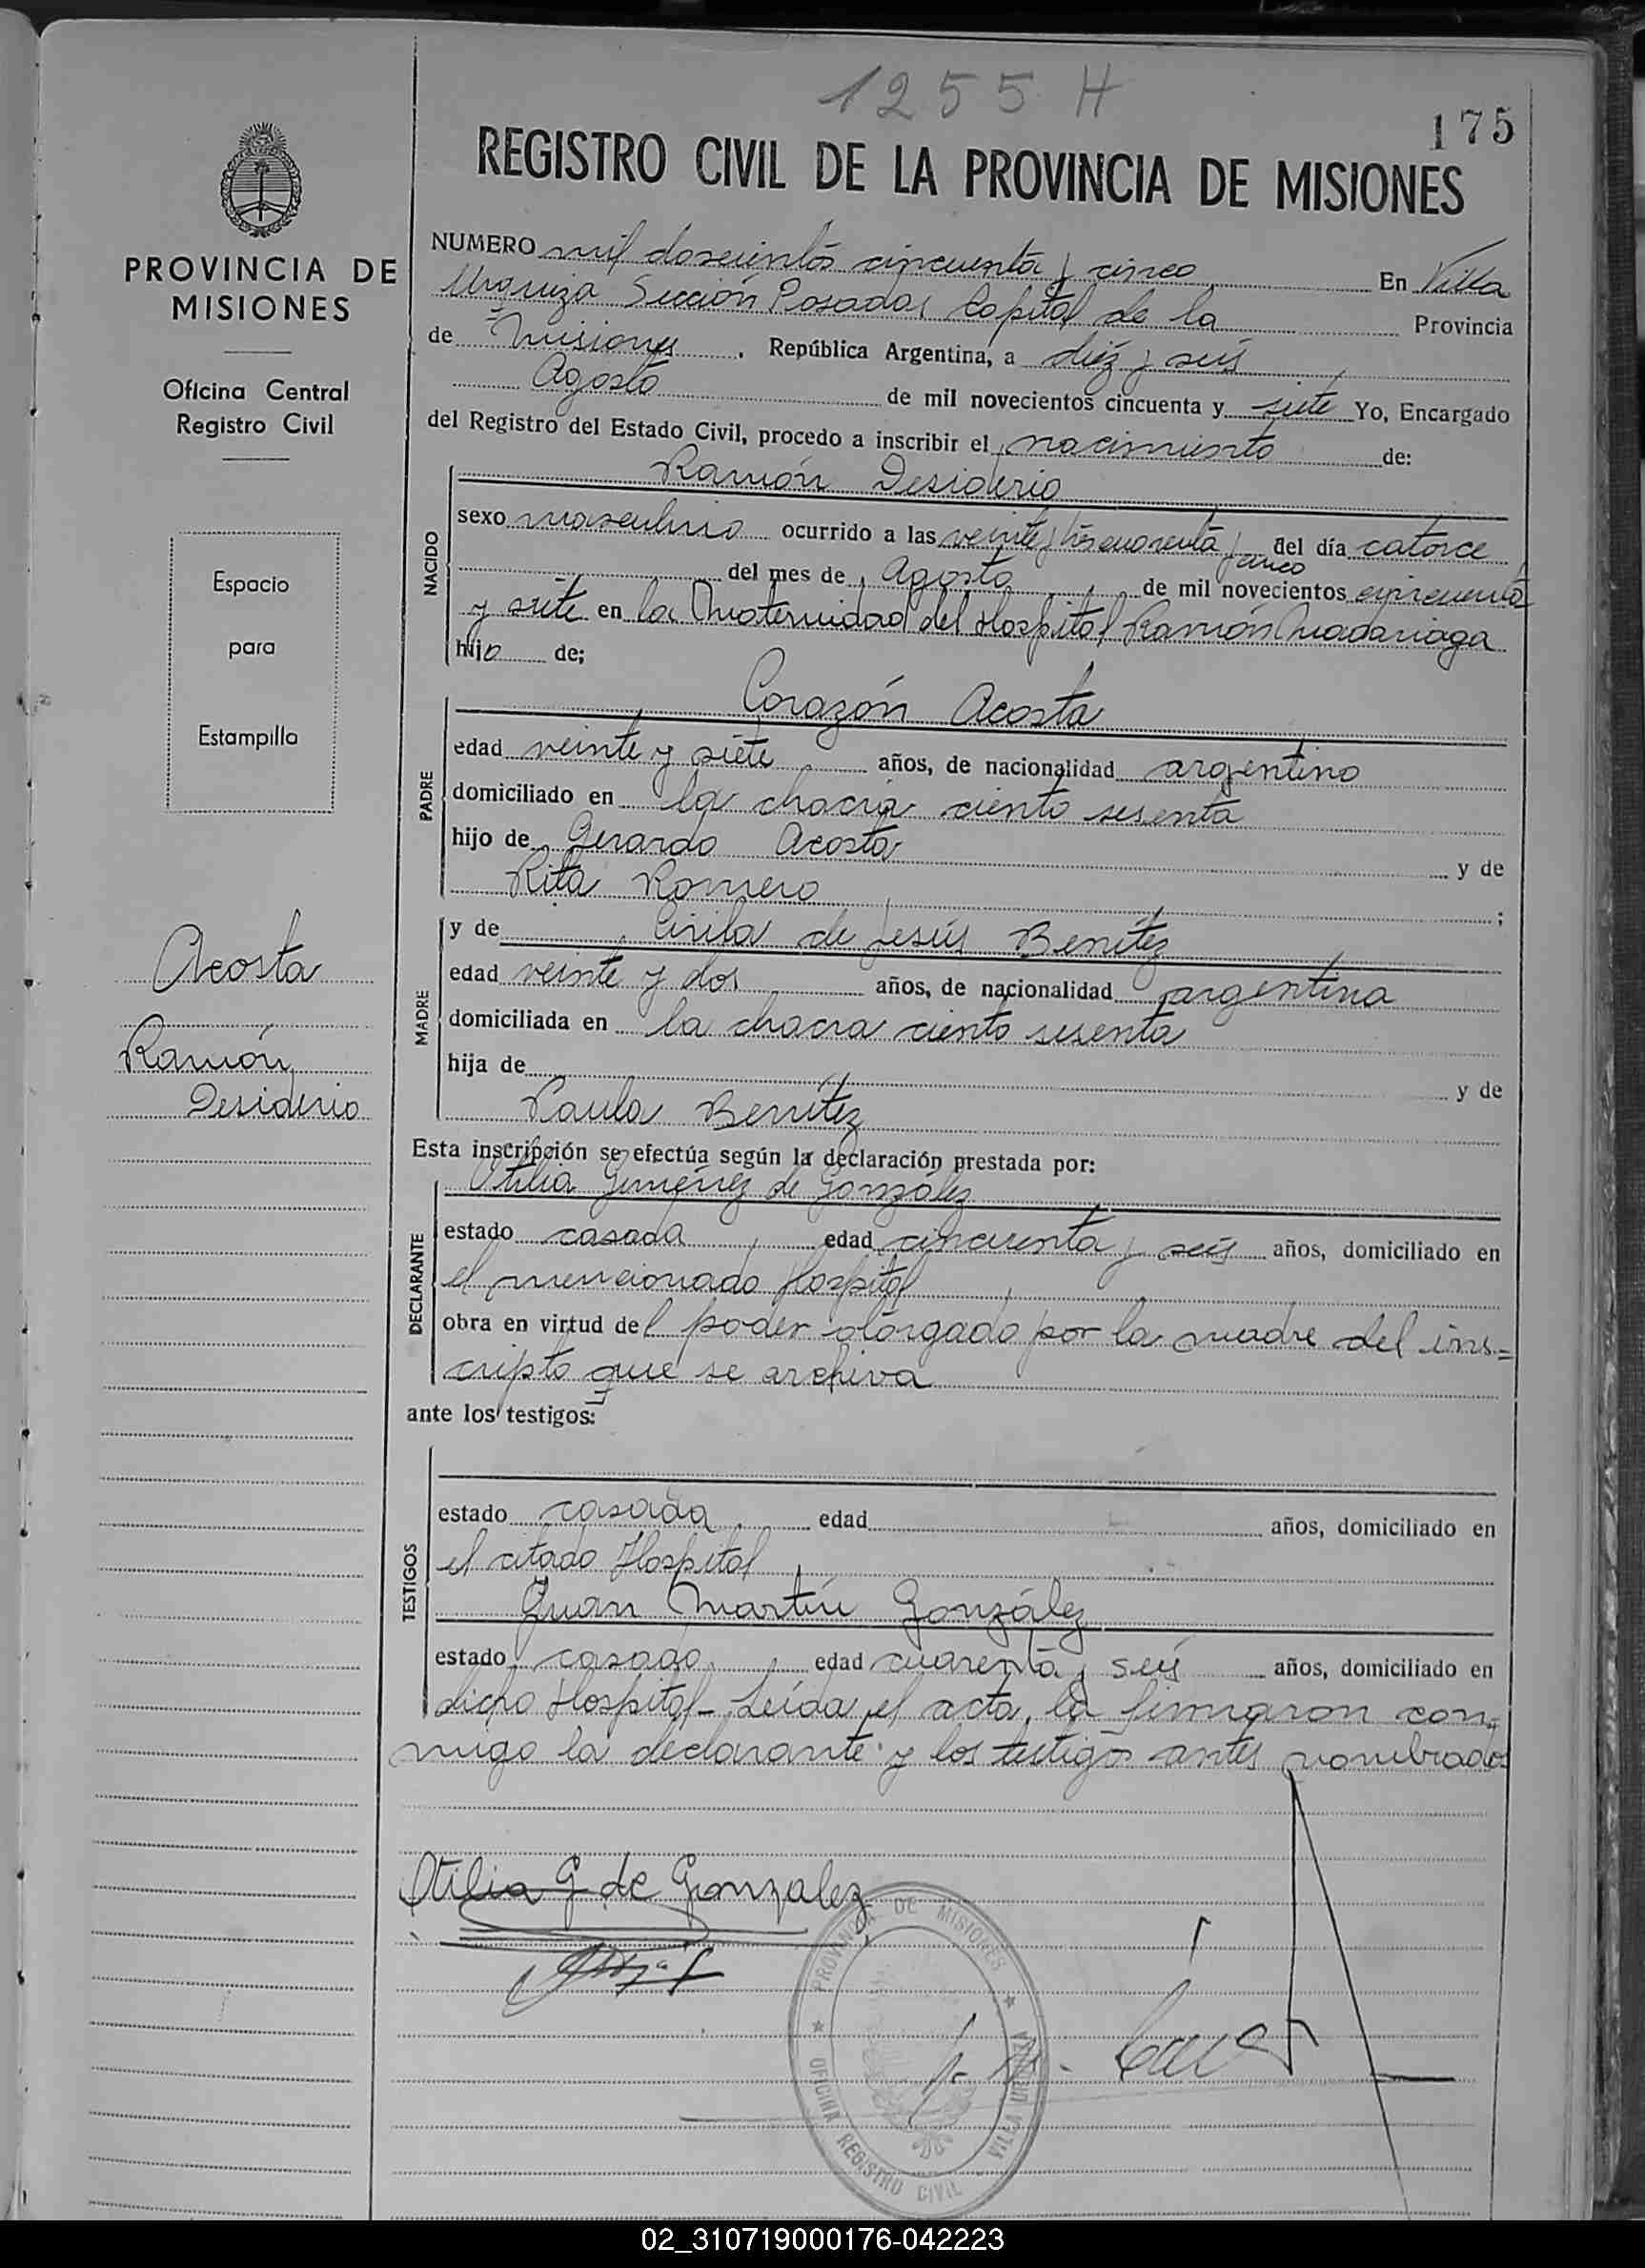 1255 H
175
REGISTRO CIVIL DE LA PROVINCIA DE MISIONES
PROVINCIA DE
MISIONES
Oficina Central
Registro Civil
Espacio
para
Estampilla
Acosta
Ramón
Desiderio
NUMERO mil doscientos cincuenta y cinco En Villa
Urquiza Sección Posadas Capital de la Provincia
de Misiones, República Argentina, a diéz y seis
Agosto de mil novecientos cincuenta y siete Yo, Encargado
del Registro del Estado Civil, procedo a inscribir el nacimiento de:
NACIDO
Ramón Desiderio
sexo masculino ocurrido a las veinte y tres cuarenta y cinco del día catorce
del mes de Agosto de mil novecientos cincuenta
y siete en la Maternidad del Hospital Ramón Madariaga
hijo de;
PADRE
Corazón Acosta
edad veinte y siete años, de nacionalidad argentino
domiciliado en la chacra ciento sesenta
hijo de Gerardo Acosta y de
Rita Romero ;
MADRE
y de Cirila de Jesús Benítez
edad veinte y dos años, de nacionalidad argentina
domiciliada en la chacra ciento sesenta
hija de y de
Paula Benítez
Esta inscripción se efectúa según la declaración prestada por:
DECLARANTE
Otilia Giménez de González
estado casada edad cincuenta y seis años, domiciliado en
el mencionado Hospital
obra en virtud del poder otorgado por la madre del ins=
cripto que se archiva
ante los testigos:
TESTIGOS
estado casada edad años, domiciliado en
el citado Hospital
Juan Martín González
estado casado edad cuarenta y seis años, domiciliado en
dicho Hospital - Leída el acta, la firmaron con=
migo la declarante y los testigos antes nombrados
Otilia G. de Gonzalez
PROVINCIA DE MISIONES
OFICINA REGISTRO CIVIL
VILLA URQUIZA
02_310719000176-042223